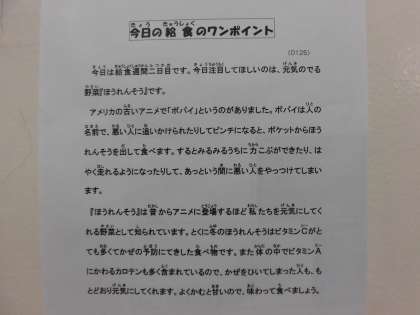 今日の給食のワンポイント
(0125)
今日は給食週間二日目です。今日注目してほしいのは、元気のでる
野菜『ほうれんそう』です。
アメリカの古いアニメで「ポパイ」というのがありました。ポパイは人の
名前で、悪い人に追いかけられたりしてピンチになると、ポケットからほう
れんそうを出して食べます。するとみるみるうちに力こぶができたり、は
やく走れるようになったりして、あっという間に悪い人をやっつけてしまい
ます。
『ほうれんそう』は昔からアニメに登場するほど私たちを元気にしてく
れる野菜として知られています。とくに冬のほうれんそうはビタミンCがと
ても多くてかぜの予防にてきした食べ物です。また体の中でビタミンA
にかわるカロテンも多く含まれているので、かぜをひいてしまった人も、も
とどおり元気にしてくれます。よくかむと甘いので、味わって食べましょう。